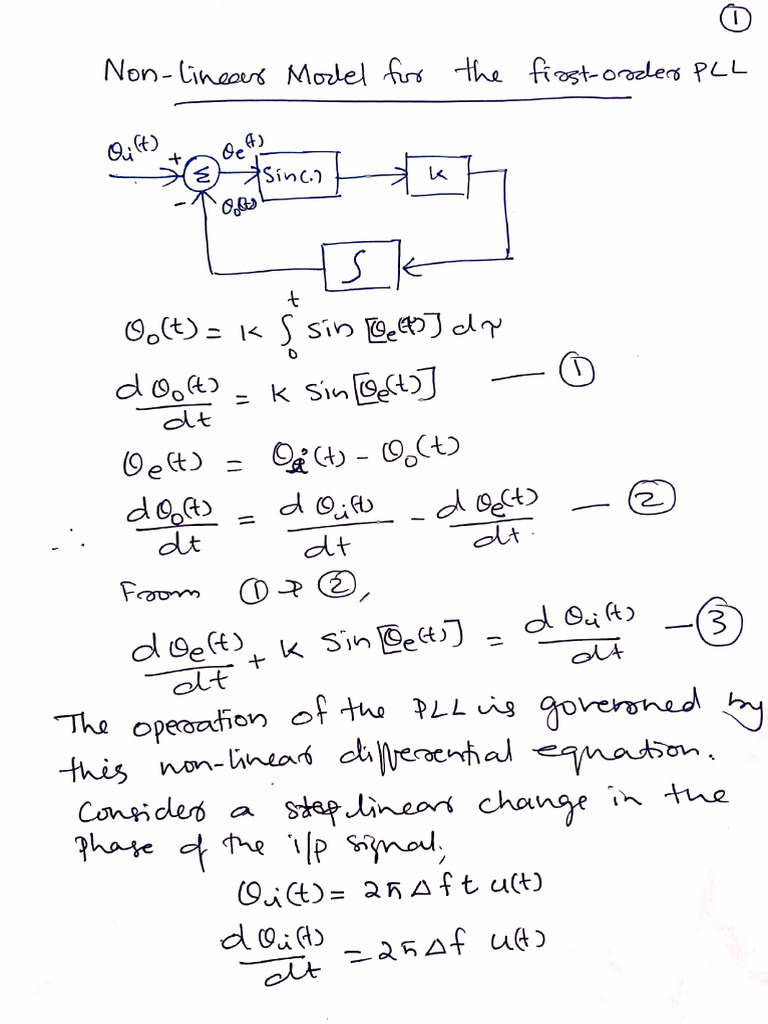 ①
Non-linear Model for the first-order PLL
θi(t) + Σ θe(t) Sin(.) K
- θo(t)
∫
θo(t) = K ∫₀ᵗ sin [θe(t)] dτ
dθo(t)/dt = K Sin[θe(t)] — ①
θe(t) = θi(t) - θo(t)
∴ dθo(t)/dt = dθi(t)/dt - dθe(t)/dt — ②
From ① & ②,
dθe(t)/dt + K Sin[θe(t)] = dθi(t)/dt — ③
The operation of the PLL is governed by
this non-linear differential equation.
Consider a linear change in the
phase of the i/p signal;
θi(t) = 2π Δf t u(t)
dθi(t)/dt = 2π Δf u(t)